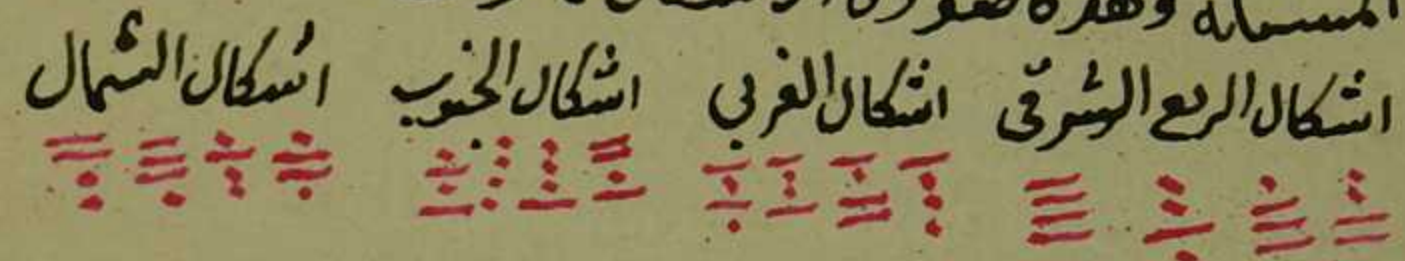 المسماة وهذه صورة
اشكال الربع الشرقى اشكال الغربى اشكال الجنوب اشكال الشمال